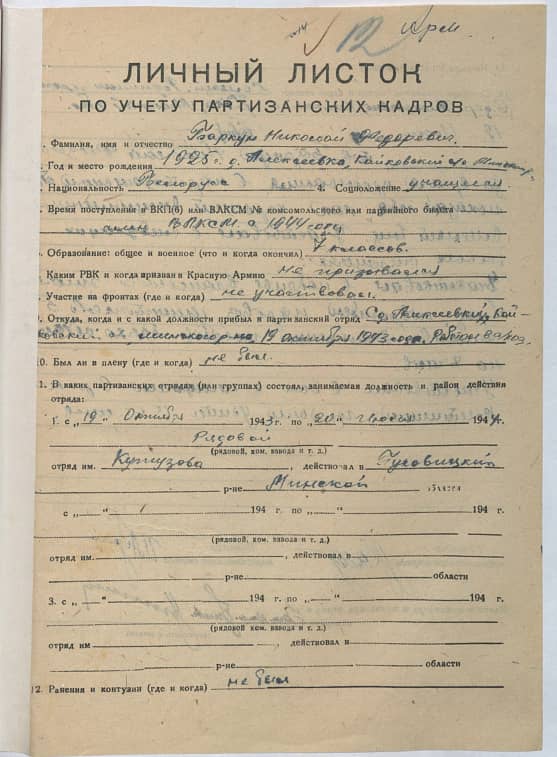 12
ЛИЧНЫЙ ЛИСТОК
ПО УЧЕТУ ПАРТИЗАНСКИХ КАДРОВ
. Фамилия, имя и отчество Баркун Николай Федорович.
. Год и место рождения 1925 г. д. Алексеевка,
. Национальность Белорус 4. Соцположение учащийся
. Время поступления в ВКП(б) или ВЛКСМ № комсомольского или партийного билета
член ВЛКСМ с 1944 года
. Образование: общее и военное (что и когда окончил) 7 классов.
. Каким РВК и когда призван в Красную Армию не призывался
. Участие на фронтах (где и когда) не участвовал.
. Откуда, когда и с какой должности прибыл в партизанский отряд
19 октября 1943 года,
0. Был ли в плену (где и когда) не был.
1. В каких партизанских отрядах (или группах) состоял, занимаемая должность и район действия
отряда:
1. с „19" Октября 1943 г. по „20" 1944 г.
Рядовой
(рядовой, ком. взвода и т. д.)
отряд им. Кутузова, действовал в
р-не Минской области
с „ " 194 г. по „ " 194 г.
(рядовой, ком. взвода и т. д.)
отряд им. , действовал в
р-не области
3. с „ " 194 г. по „ " 194 г.
(рядовой, ком. взвода и т. д.)
отряд им , действовал в
р-не области
12. Ранения и контузии (где и когда) не был